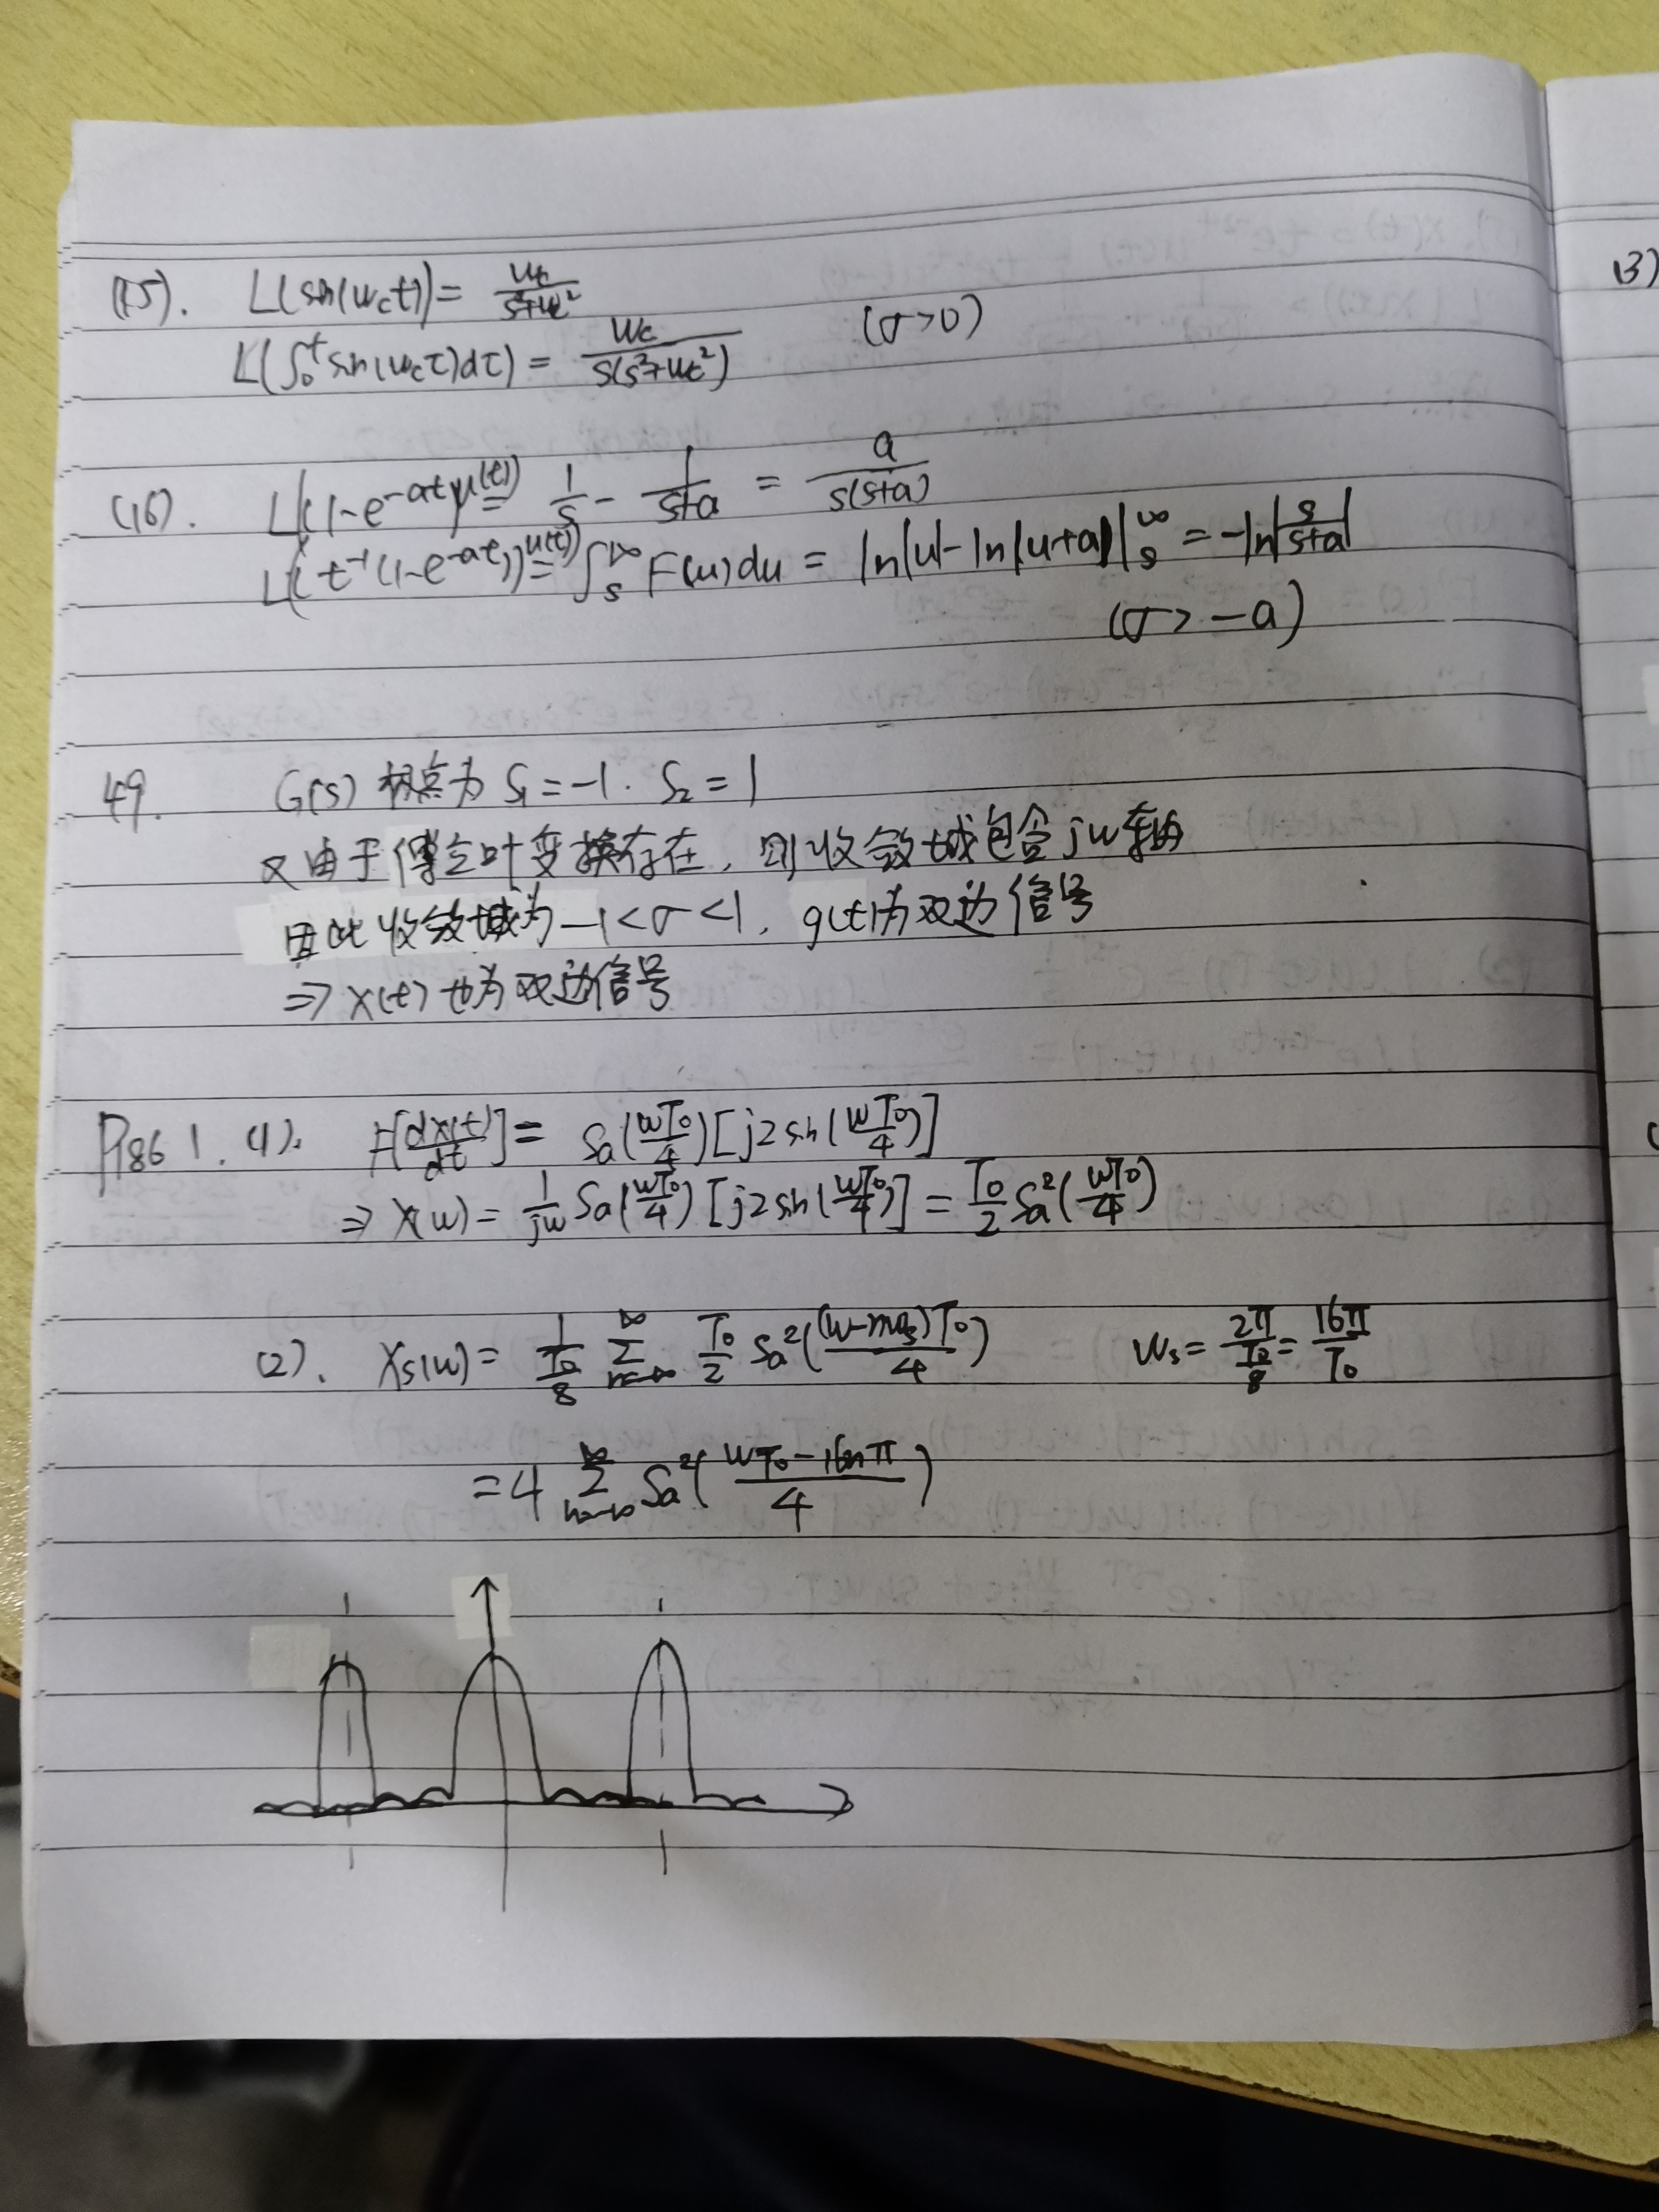 (15). L(sin(ωct)) = ωc/(s²+ωc²)
L(∫₀ᵗ sin(ωcτ)dτ) = ωc/(s(s²+ωc²)) (σ>0)
(16). L((1-e^(-at))u(t)) = 1/s - 1/(s+a) = a/(s(s+a))
L(t⁻¹(1-e^(-at))u(t)) = ∫ₛ^∞ F(u)du = ln|u| - ln|u+a| |ₛ^∞ = -ln|s/(s+a)|
(σ > -a)
49. G(s) 极点为 S₁ = -1. S₂ = 1
又由于傅立叶变换存在, 则收敛域包含jw轴
因此收敛域为 -1<σ<1, g(t)为双边信号
⇒ x(t) 也为双边信号
P186 1. (1). F[dx(t)/dt] = Sa(ωT₀/4)[j2sin(ωT₀/4)]
⇒ X(ω) = 1/(jω) Sa(ωT₀/4)[j2sin(ωT₀/4)] = T₀/2 Sa²(ωT₀/4)
(2). Xs(ω) = 1/(T₀/8) Σ_(n=-∞)^∞ T₀/2 Sa²((ω-nωs)T₀/4) ωs = 2π/(T₀/8) = 16π/T₀
= 4 Σ_(n=-∞)^∞ Sa²((ωT₀-16nπ)/4)
13)